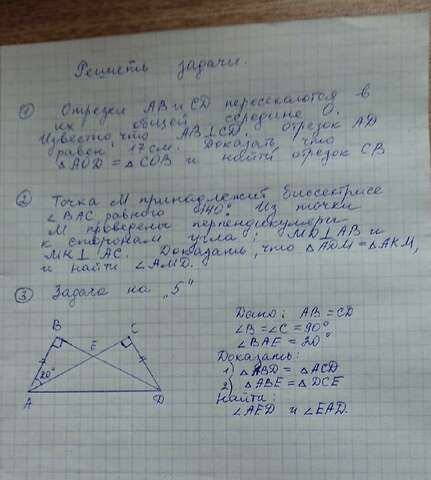 Решить задачи.
① Отрезки AB и CD пересекаются в
их общей середине O.
Известно, что AB⊥CD, отрезок AD
равен 17 см. Доказать, что
△AOD = △COB и найти отрезок CB
② Точка M принадлежит биссектрисе
∠BAC, равного 140°. Из точки
M проведены перпендикуляры
к сторонам угла: MD⊥AB и
MK⊥AC. Доказать, что △ADM = △AKM,
и найти ∠AMD.
③ Задача на „5"
Дано: AB = CD
∠B = ∠C = 90°
∠BAE = 20°
Доказать:
1) △ABD = △ACD
2) △ABE = △DCE
Найти:
∠AED и ∠EAD.
B C
E
20°
A D